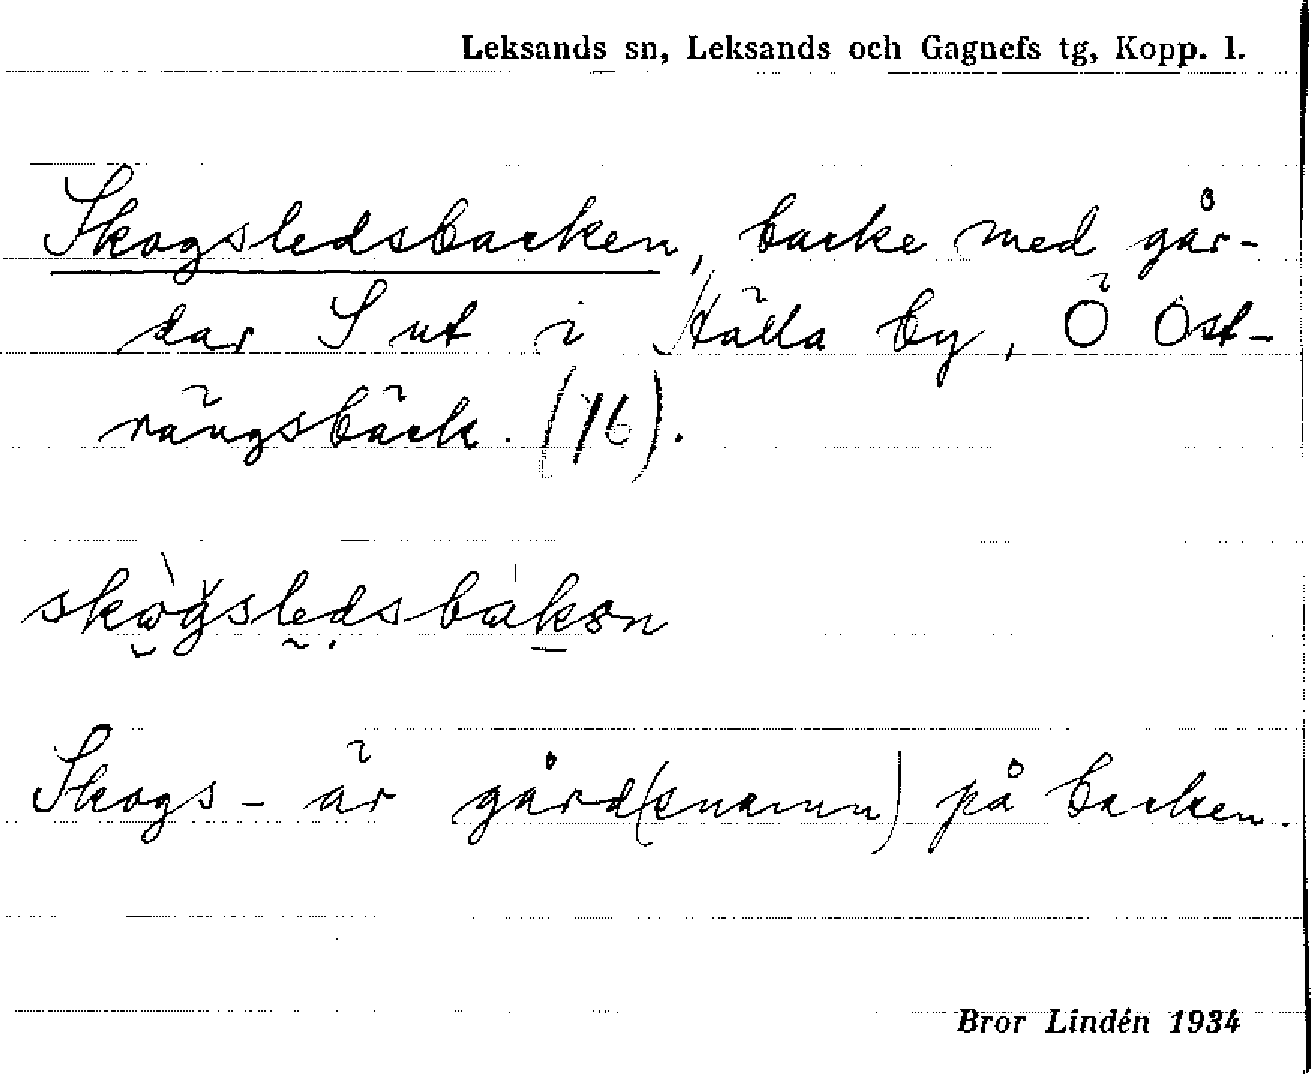 Leksands sn, Leksands och Gagnefs tg, Kopp. l.
Skogsledsbacken, backe med går-
dar S ut i Hälla by, Ö Öst-
rängsbäck. (76).
skògsledsbakən
Skogs- är gård(snamn) på backen.
Bror Lindén 1934